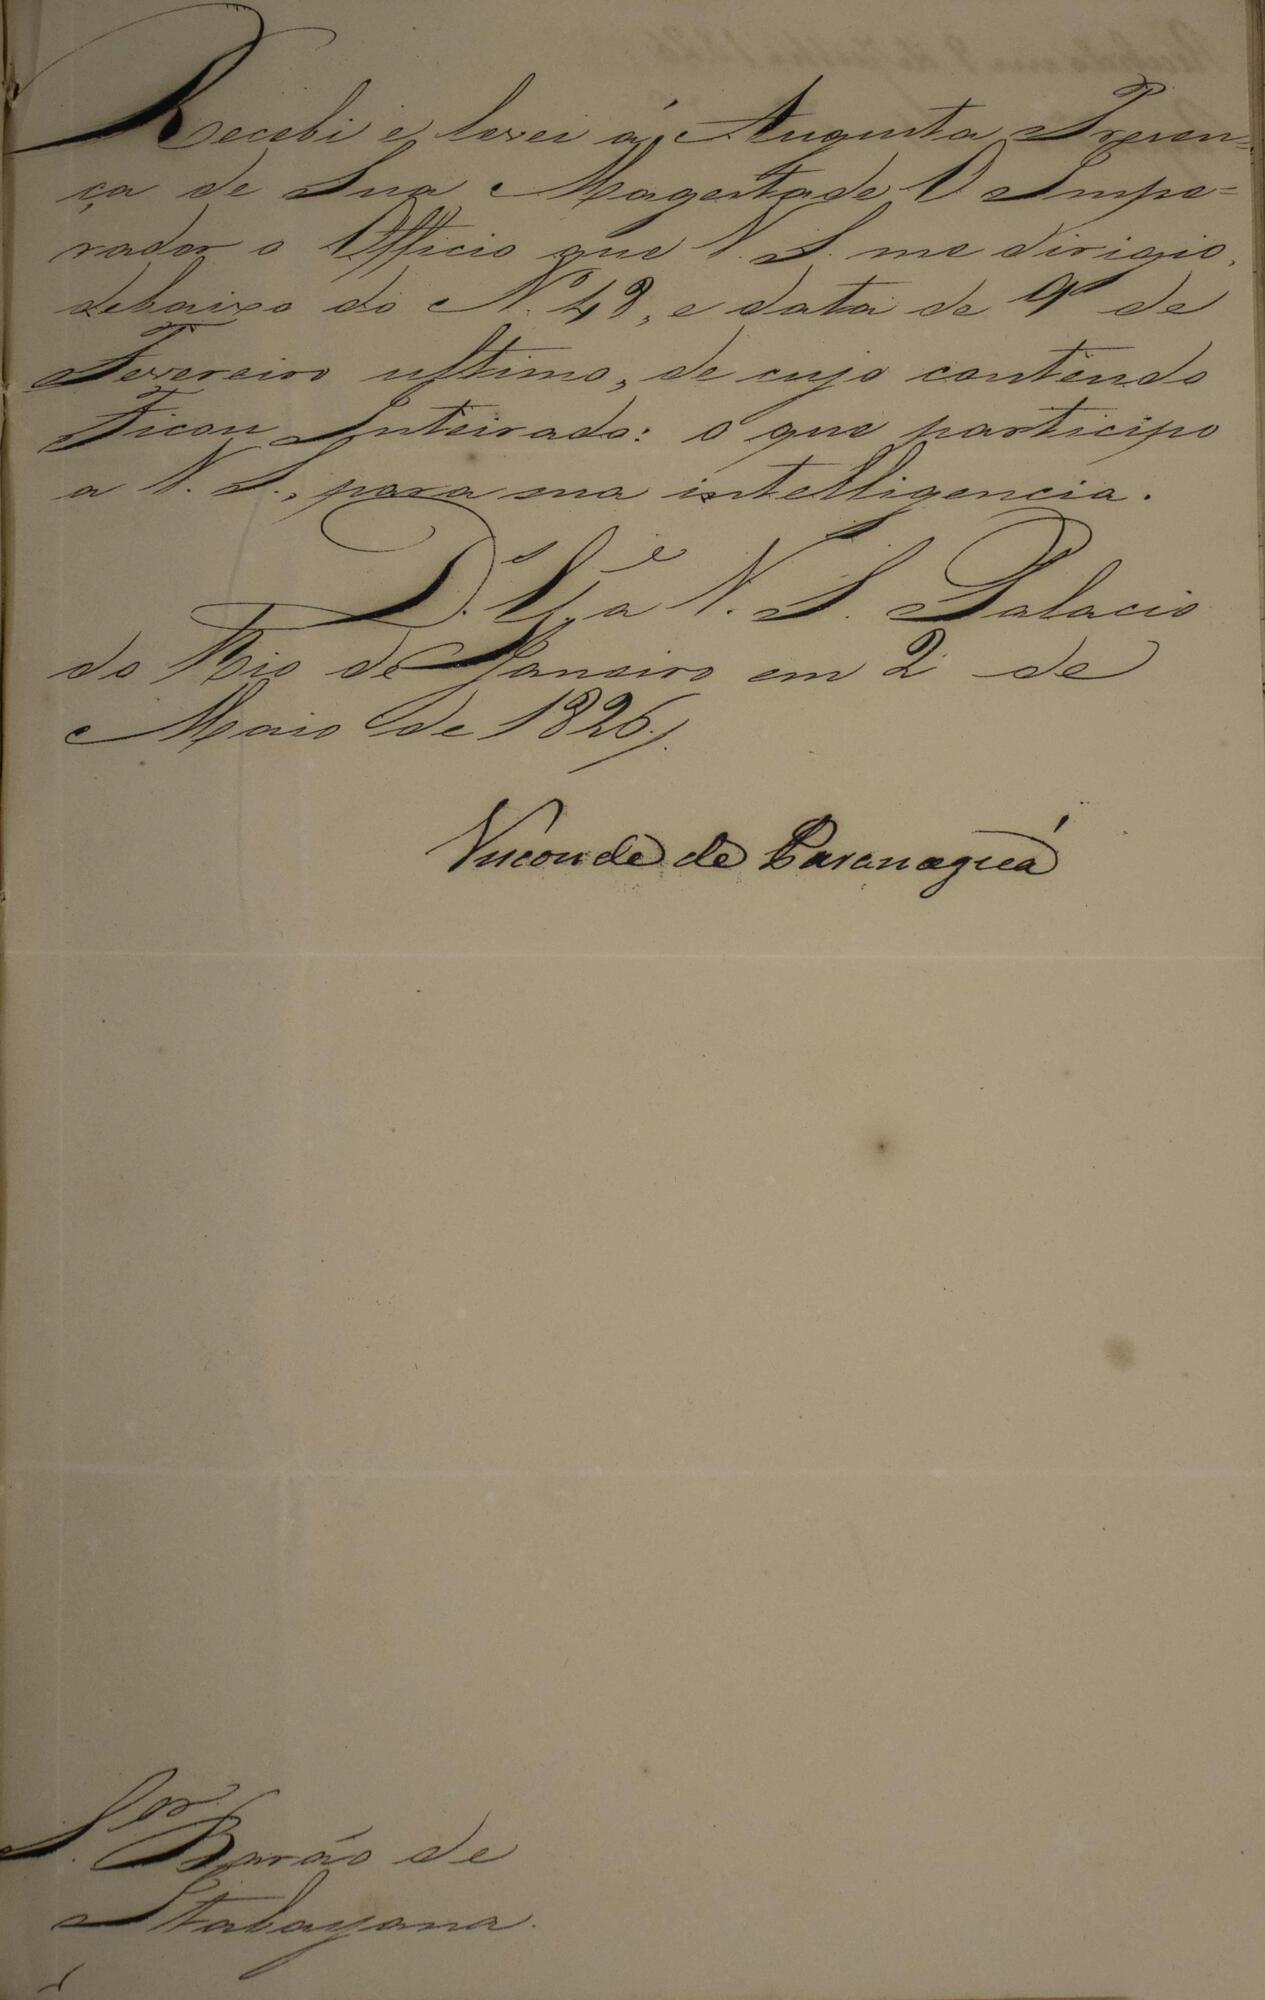 Recebi e levei á Augusta Presen=
ça de Sua Magestade O Impe=
rador o Officio que V. S. me dirigio,
debaixo do N.º 48, e data de 9 de
Fevereiro ultimo, de cujo conteudo
Ficou Inteirado: o que participo
a V. S., para sua intelligencia.
D.s G.e a V. S. Palacio
do Rio de Janeiro em 2 de
Maio de 1826.
Visconde de Paranaguá
S.or Barão de
Itabayana.